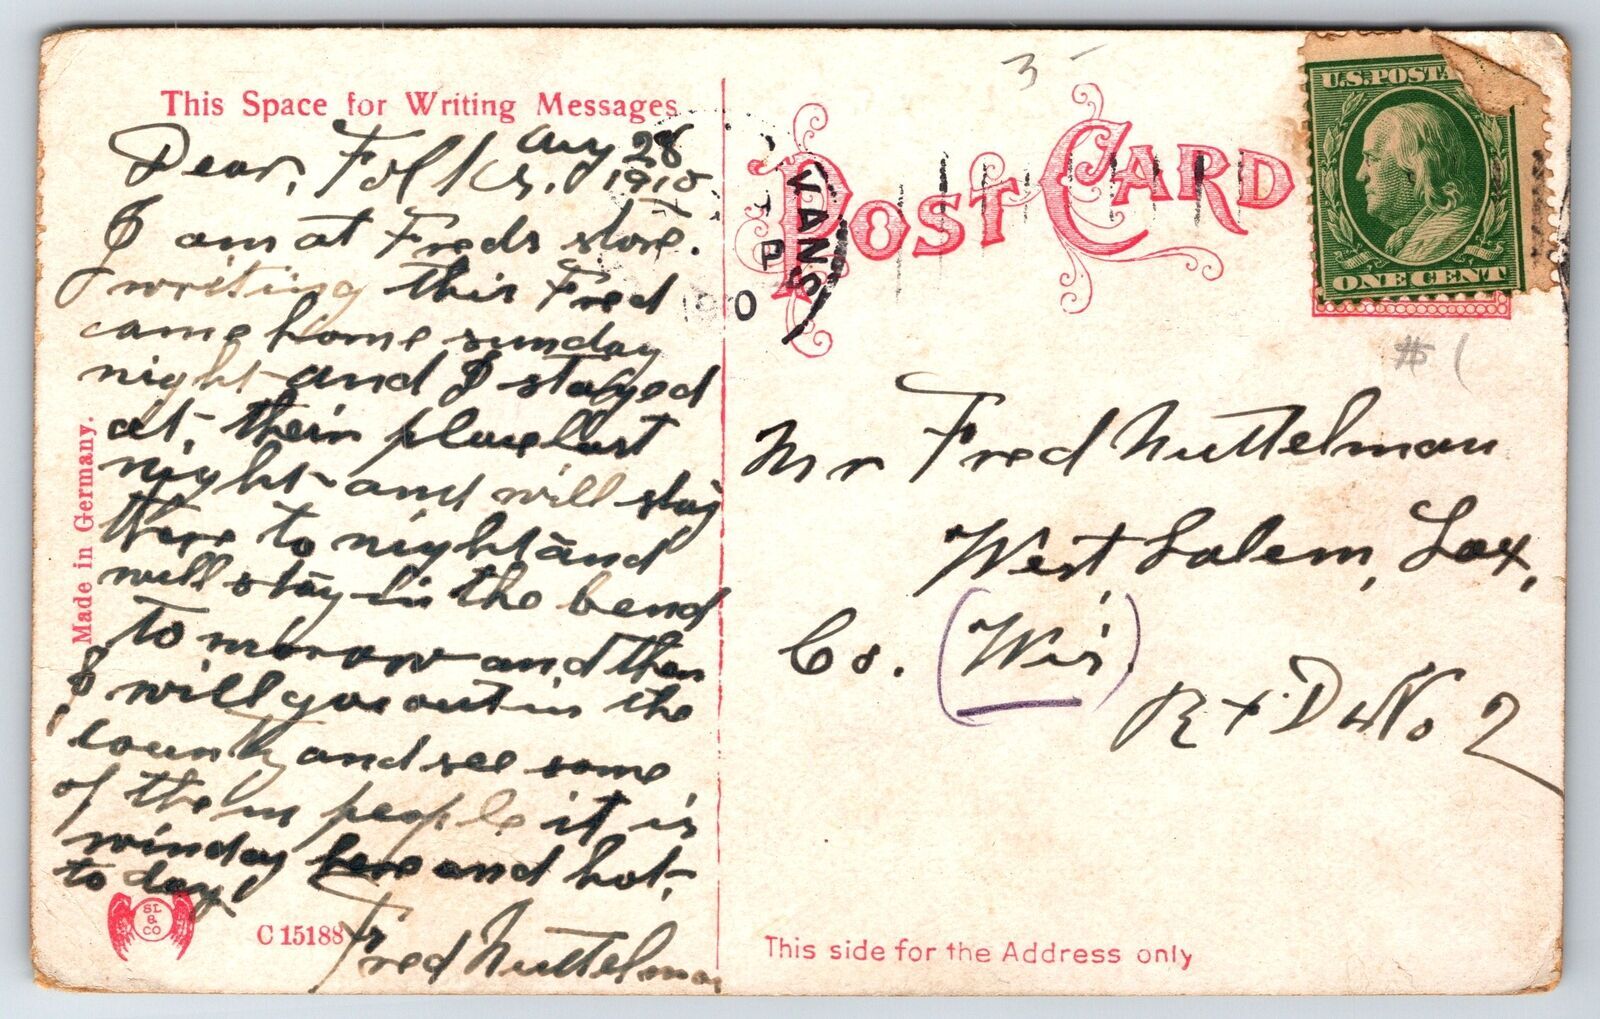 This Space for Writing Messages
Aug 28
1910
Dear, Folks.
I am at Freds store.
writing this Fred
came home sunday
night and I stayed
at, their place last
night and will stay
there to night and
will stay in the bend
to morrow and then
I will go out in the
county and see some
of them people it is
winday here and hot,
to day.
Fred Nuttelman
Made in Germany.
SL
&
CO
C 15188
POST CARD
3 -
VANS
U.S. POSTA
ONE CENT
$1
Mr Fred Nuttelman
West Salem, Lax,
Co. (Wis)
R + D No 2
This side for the Address only